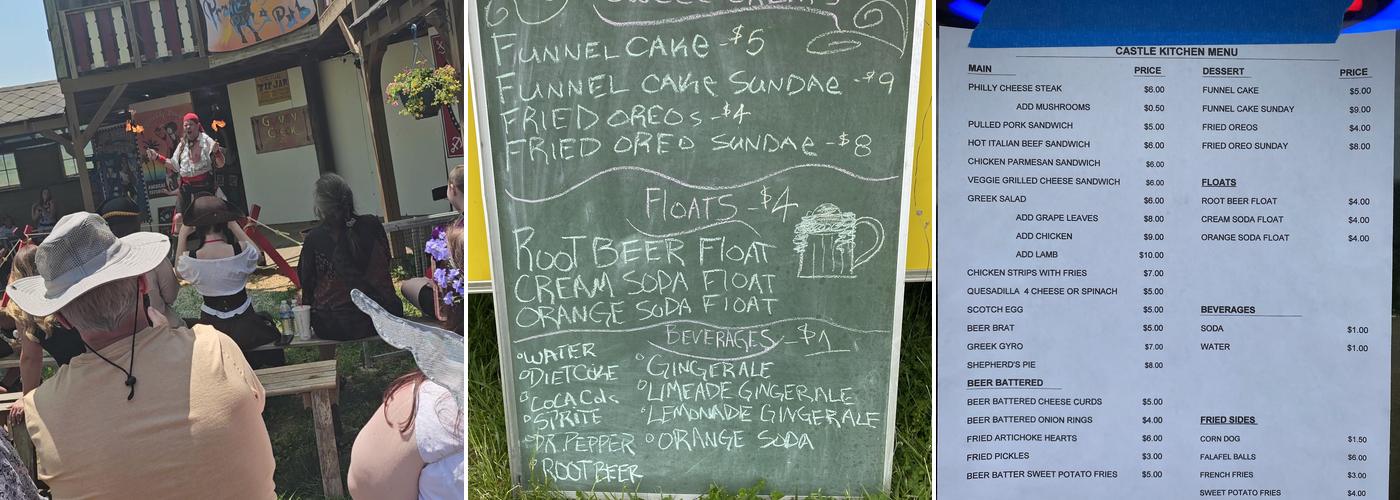 TIP JAR
FUNNEL CAKE - $5
FUNNEL CAKE SUNDAE - $9
FRIED OREOS - $4
FRIED OREO SUNDAE - $8
FLOATS - $4
ROOT BEER FLOAT
CREAM SODA FLOAT
ORANGE SODA FLOAT
BEVERAGES - $1
°WATER
°DIET COKE
°COCA COLA
°SPRITE
°DR. PEPPER
°ROOT BEER
°GINGERALE
°LIMEADE GINGERALE
°LEMONADE GINGERALE
°ORANGE SODA
CASTLE KITCHEN MENU
MAIN PRICE
PHILLY CHEESE STEAK $6.00
ADD MUSHROOMS $0.50
PULLED PORK SANDWICH $5.00
HOT ITALIAN BEEF SANDWICH $6.00
CHICKEN PARMESAN SANDWICH $6.00
VEGGIE GRILLED CHEESE SANDWICH $6.00
GREEK SALAD $6.00
ADD GRAPE LEAVES $8.00
ADD CHICKEN $9.00
ADD LAMB $10.00
CHICKEN STRIPS WITH FRIES $7.00
QUESADILLA 4 CHEESE OR SPINACH $5.00
SCOTCH EGG $5.00
BEER BRAT $5.00
GREEK GYRO $7.00
SHEPHERD'S PIE $8.00
BEER BATTERED
BEER BATTERED CHEESE CURDS $5.00
BEER BATTERED ONION RINGS $4.00
FRIED ARTICHOKE HEARTS $6.00
FRIED PICKLES $3.00
BEER BATTER SWEET POTATO FRIES $5.00
DESSERT PRICE
FUNNEL CAKE $5.00
FUNNEL CAKE SUNDAY $9.00
FRIED OREOS $4.00
FRIED OREO SUNDAY $8.00
FLOATS
ROOT BEER FLOAT $4.00
CREAM SODA FLOAT $4.00
ORANGE SODA FLOAT $4.00
BEVERAGES
SODA $1.00
WATER $1.00
FRIED SIDES
CORN DOG $1.50
FALAFEL BALLS $6.00
FRENCH FRIES $3.00
SWEET POTATO FRIES $4.00